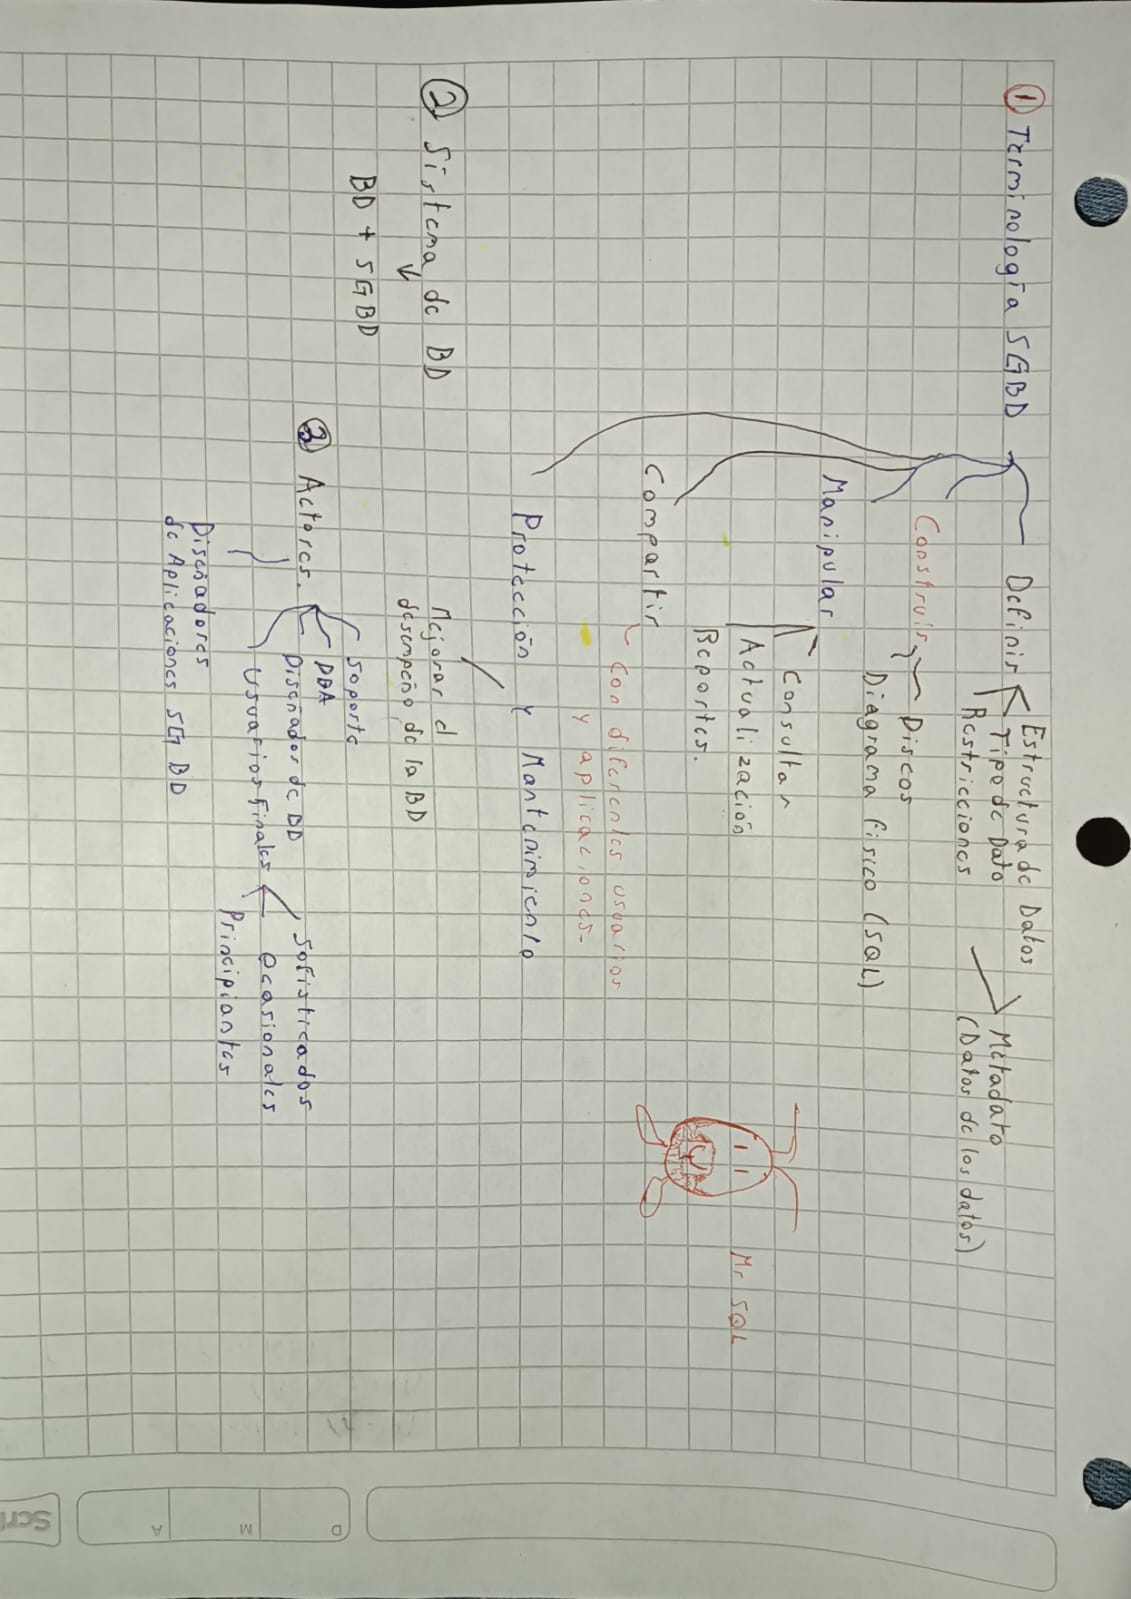 ① Terminología SGBD
Definir
Estructura de Datos
Tipo de Dato
Restricciones
Metadato
(Datos de los datos)
Construir
Discos
Diagrama físico (SQL)
Manipular
Consultar
Actualización
Reportes.
Compartir
Con diferentes usuarios
y aplicaciones-
Protección y Mantenimiento
Mejorar el
desempeño de la BD
Mr SQL
② Sistema de BD
BD + SGBD
③ Actores.
Soporte
DBA
Diseñador de BD
Usuarios Finales
Sofisticados
Ocasionales
Principiantes
Diseñadores
de Aplicaciones SGBD
D
M
A
Scri